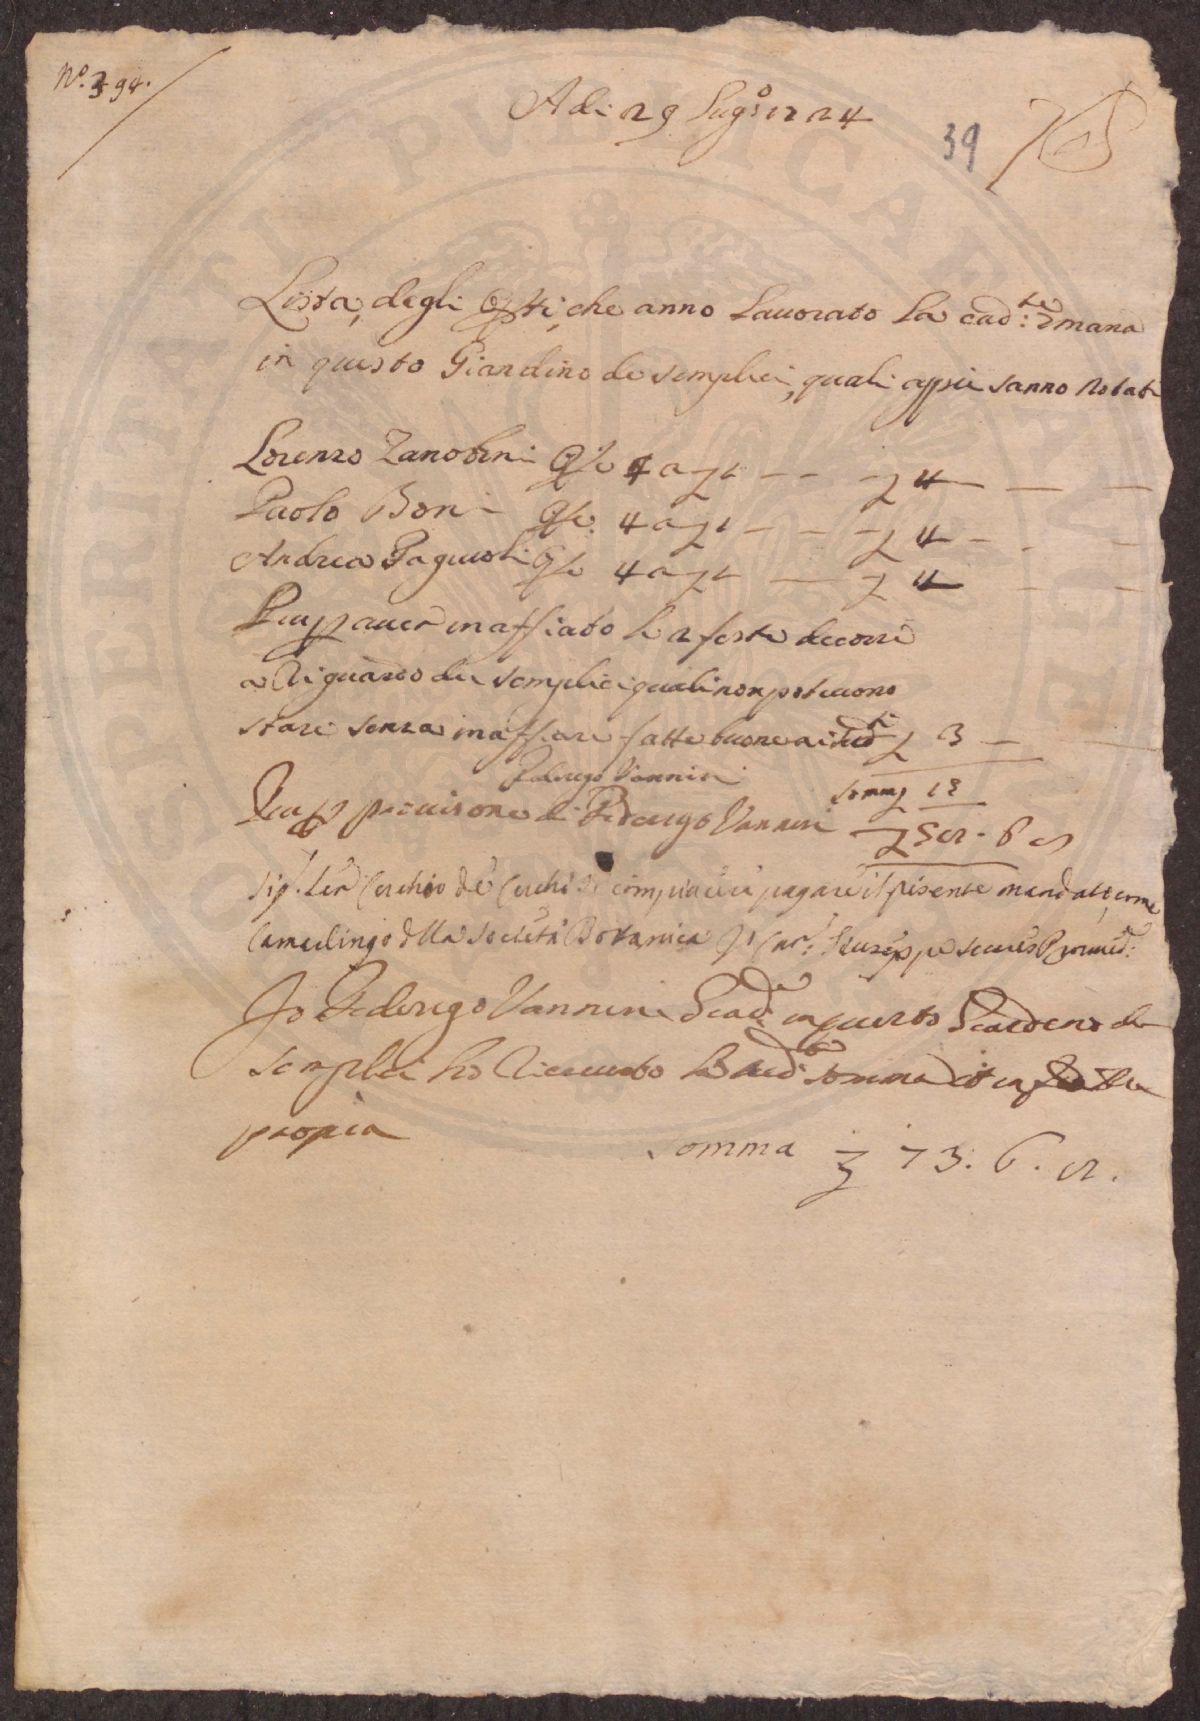 N.º 394.
A di 29 Lug.º 1724
39
Lista degli Opti, che anno Lauorato La cad.te 7mana
in questo Giardino de semplici, quali appie sanno Notati
Lorenzo Zanobini Op.e 4 a £ 1 — — £ 4 — — —
Paolo Boni Op.e 4 a £ 1 — — £ 4 — — —
Andrea Pagiuoli Op.e 4 a £ 1 — £ 4 — — —
E piu p auer inaffiato le 2 feste decorse
a Riguardo dei semplici quali non poteuono
stare senza inaffiare fatte buone ai £ 3 —
Federigo Vannini
Somma 15
E piu p prouisone di Federigo Vannini £ 58 - 6 8
Sig.r Cerchio de Cerchi si compiacerà pagare il presente mandato, come
Camerlingo della Società Botanica
Io Federigo Vannini Giad.e in questo Giardeno de
semplici ho Riceuuto la sud.a somma
propia
Somma £ 73. 6. 8.